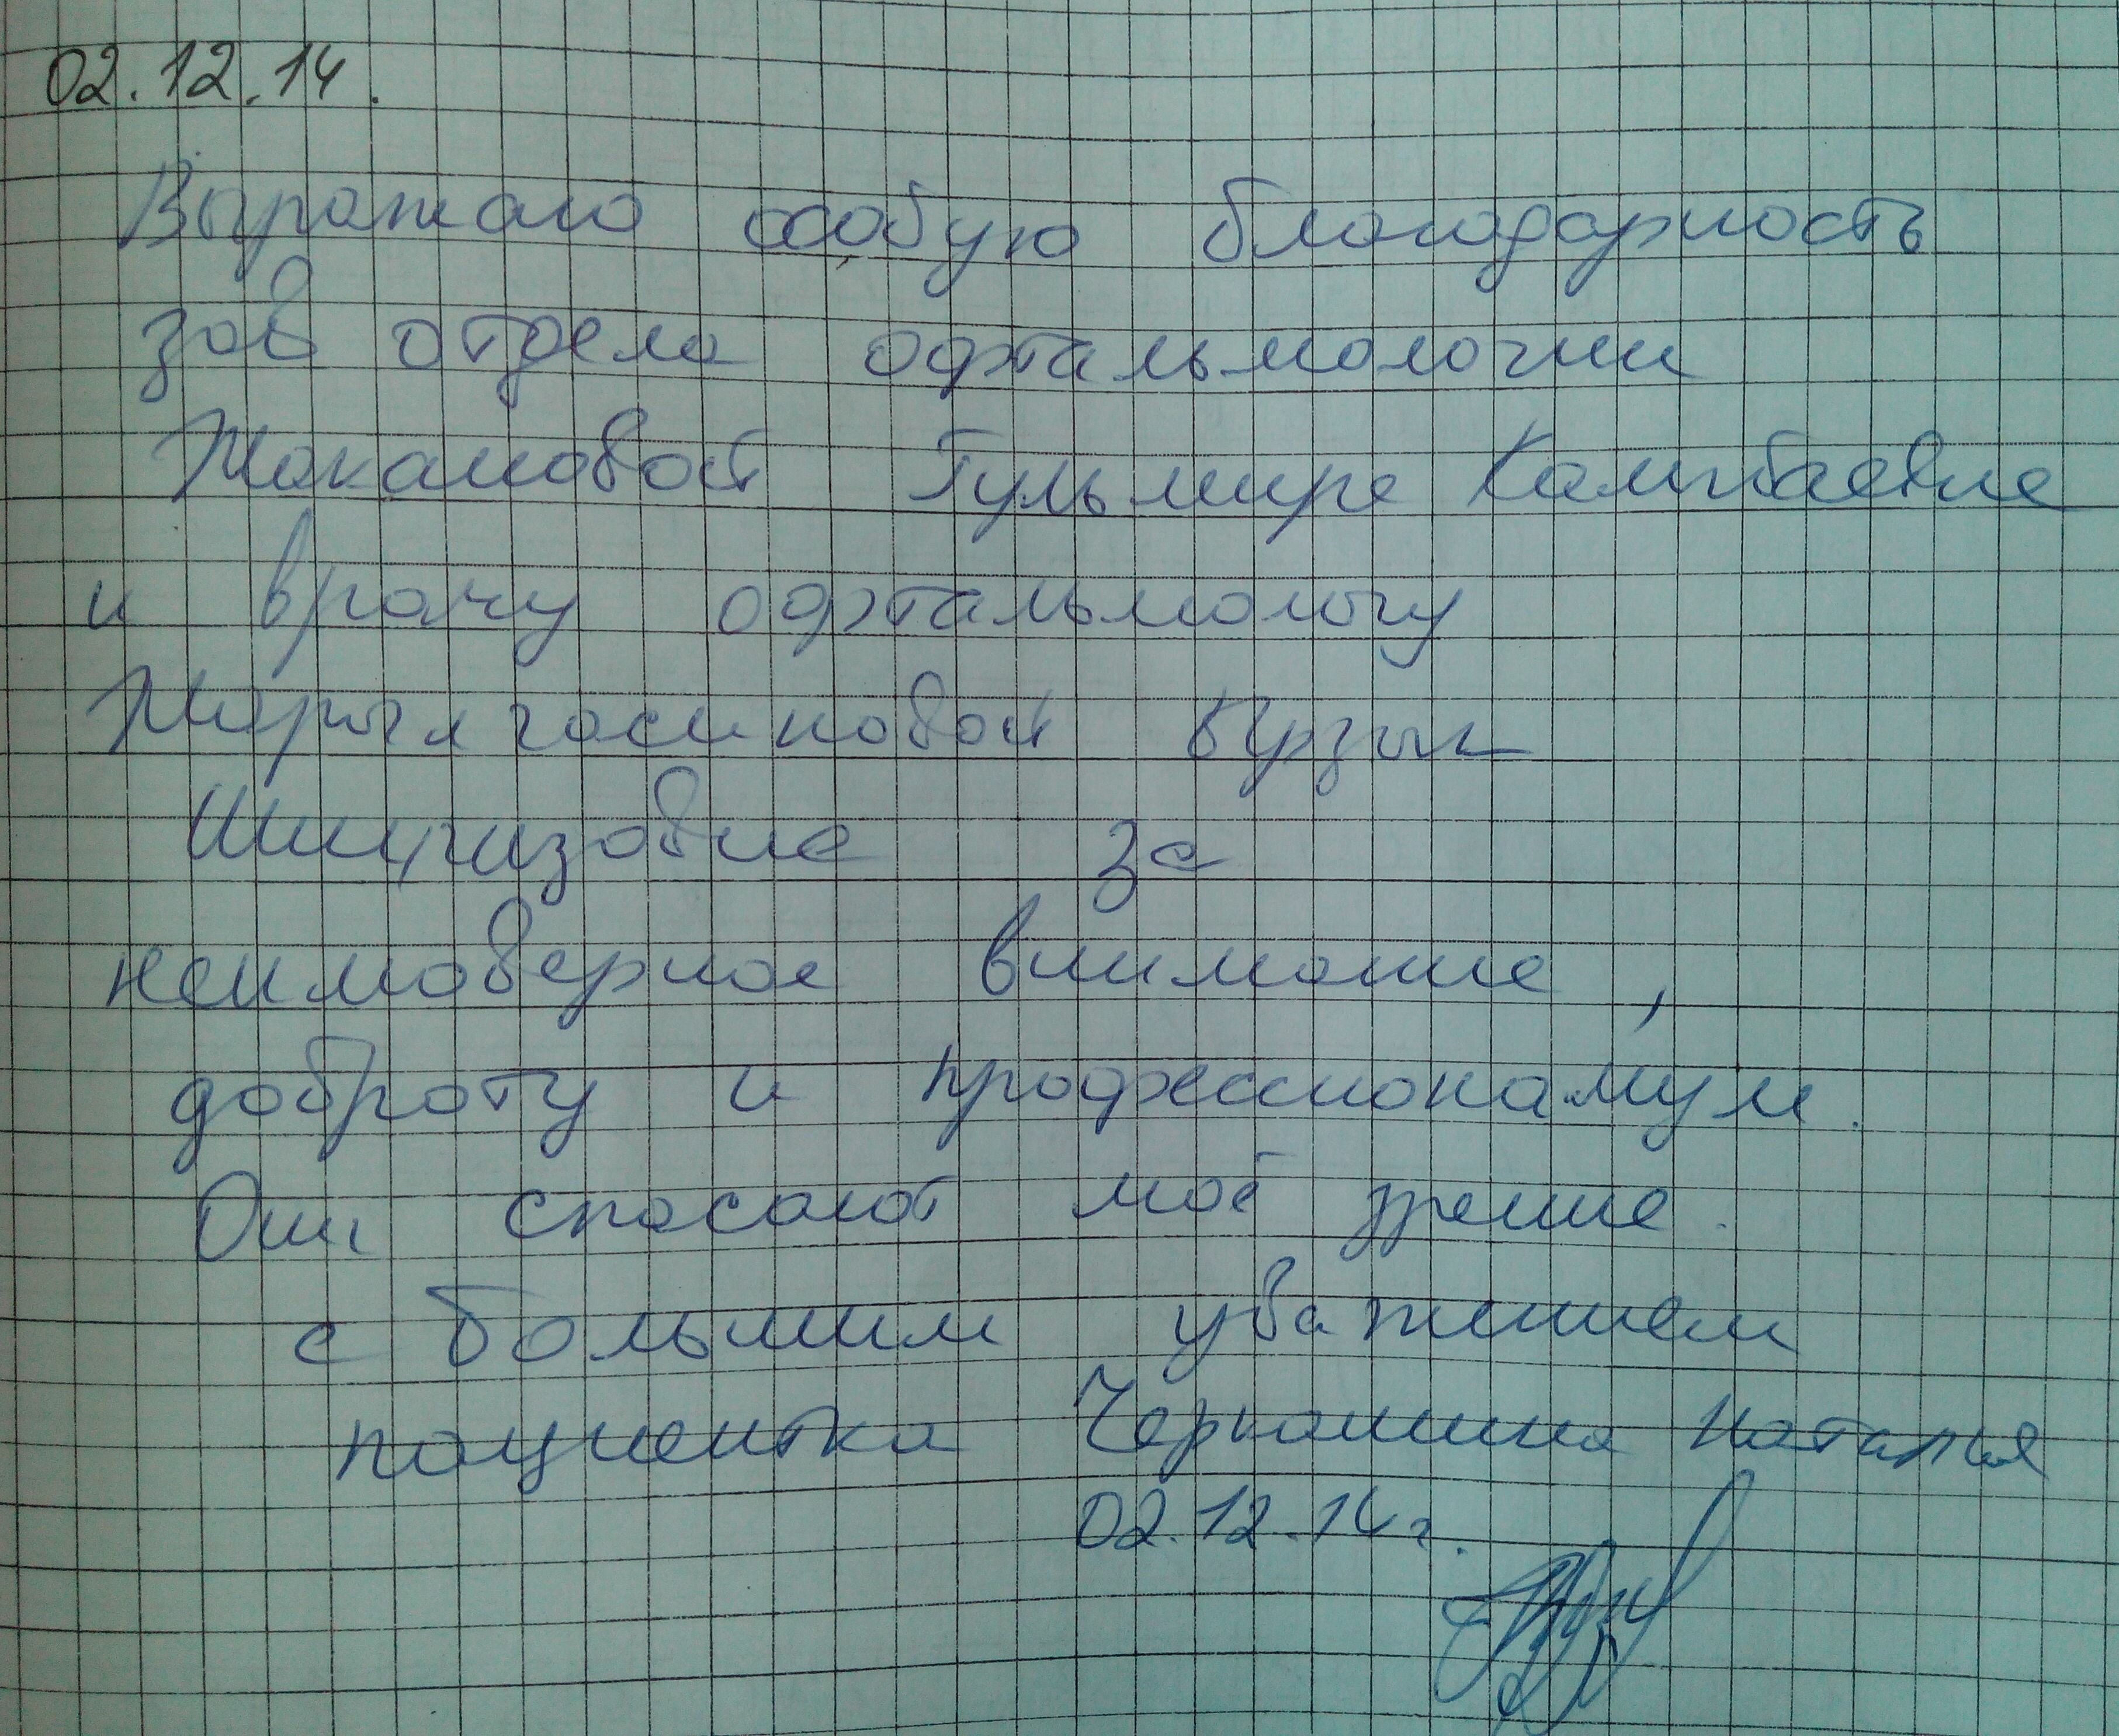 02.12.14.
Выражаю особую благодарность
зав отдела офтальмологии
Жакановой Гульмире Камбаевне
и врачу офтальмологу
Жарылгасиновой
за
неимоверное внимание,
доброту и профессионализм.
Они спасают моё зрение.
с большим уважением
пациентка Наталья
02.12.14 г.